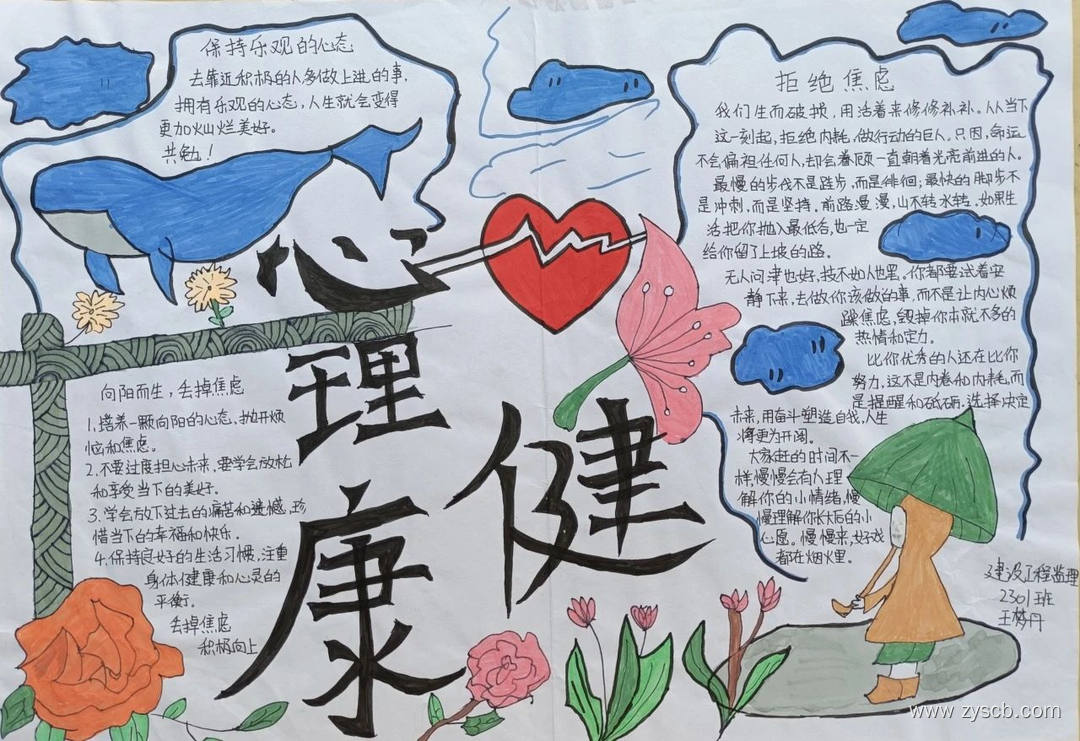 保持乐观的心态
去靠近积极的人多做上进的事,
拥有乐观的心态,人生就会变得
更加火山烂美好。
共勉!
拒绝焦虑
我们生而破损,用活着来修修补补。从当下
这一刻起,拒绝内耗,做行动的巨人,只因,命运
不会偏袒任何人,却会眷顾一直朝着光亮前进的人。
最慢的步伐不是跬步,而是徘徊;最快的脚步不
是冲刺,而是坚持。前路漫漫,山不转水转。如果生
活把你抛入最低谷,也一定
给你留了上坡的路。
无人问津也好,技不如人也罢。你都要试着安
静下来,去做你该做的事,而不是让内心烦
躁焦虑,毁掉你本就不多的
热情和定力。
比你优秀的人还在比你
努力,这不是内卷和内耗,而
是提醒和砥砺。选择决定
未来,用奋斗塑造自我,人生
将更为开阔。
大家赶的时间不一
样,慢慢会有人理
解你的小情绪,慢
慢理解你长大后的小
心愿。慢慢来,好戏
都在烟火里。
心理健康
向阳而生,丢掉焦虑
1.培养一颗向阳的心态,抛开烦
恼和焦虑。
2.不要过度担心未来,要学会放松
和享受当下的美好。
3.学会放下过去的痛苦和遗憾,珍
惜当下的幸福和快乐。
4.保持良好的生活习惯,注重
身体健康和心灵的
平衡。
丢掉焦虑
积极向上
建设工程监理
2301班
王梦丹
www.zyscb.com